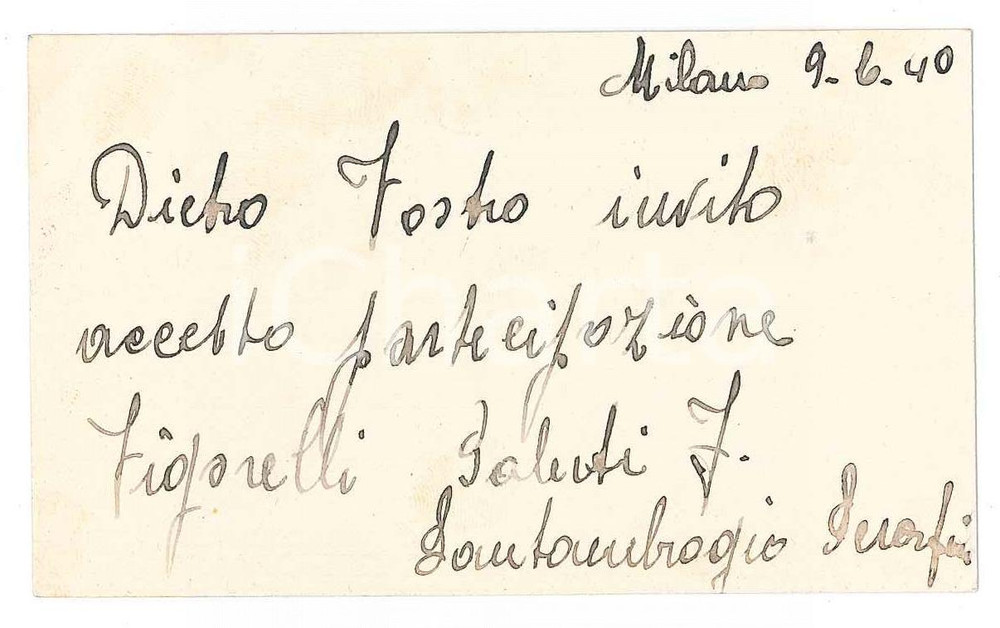 Milano 9-6-40
Dietro Vostro invito
accetto partecipazione
Figorelli Saluti F.
Santambrogio Serafin